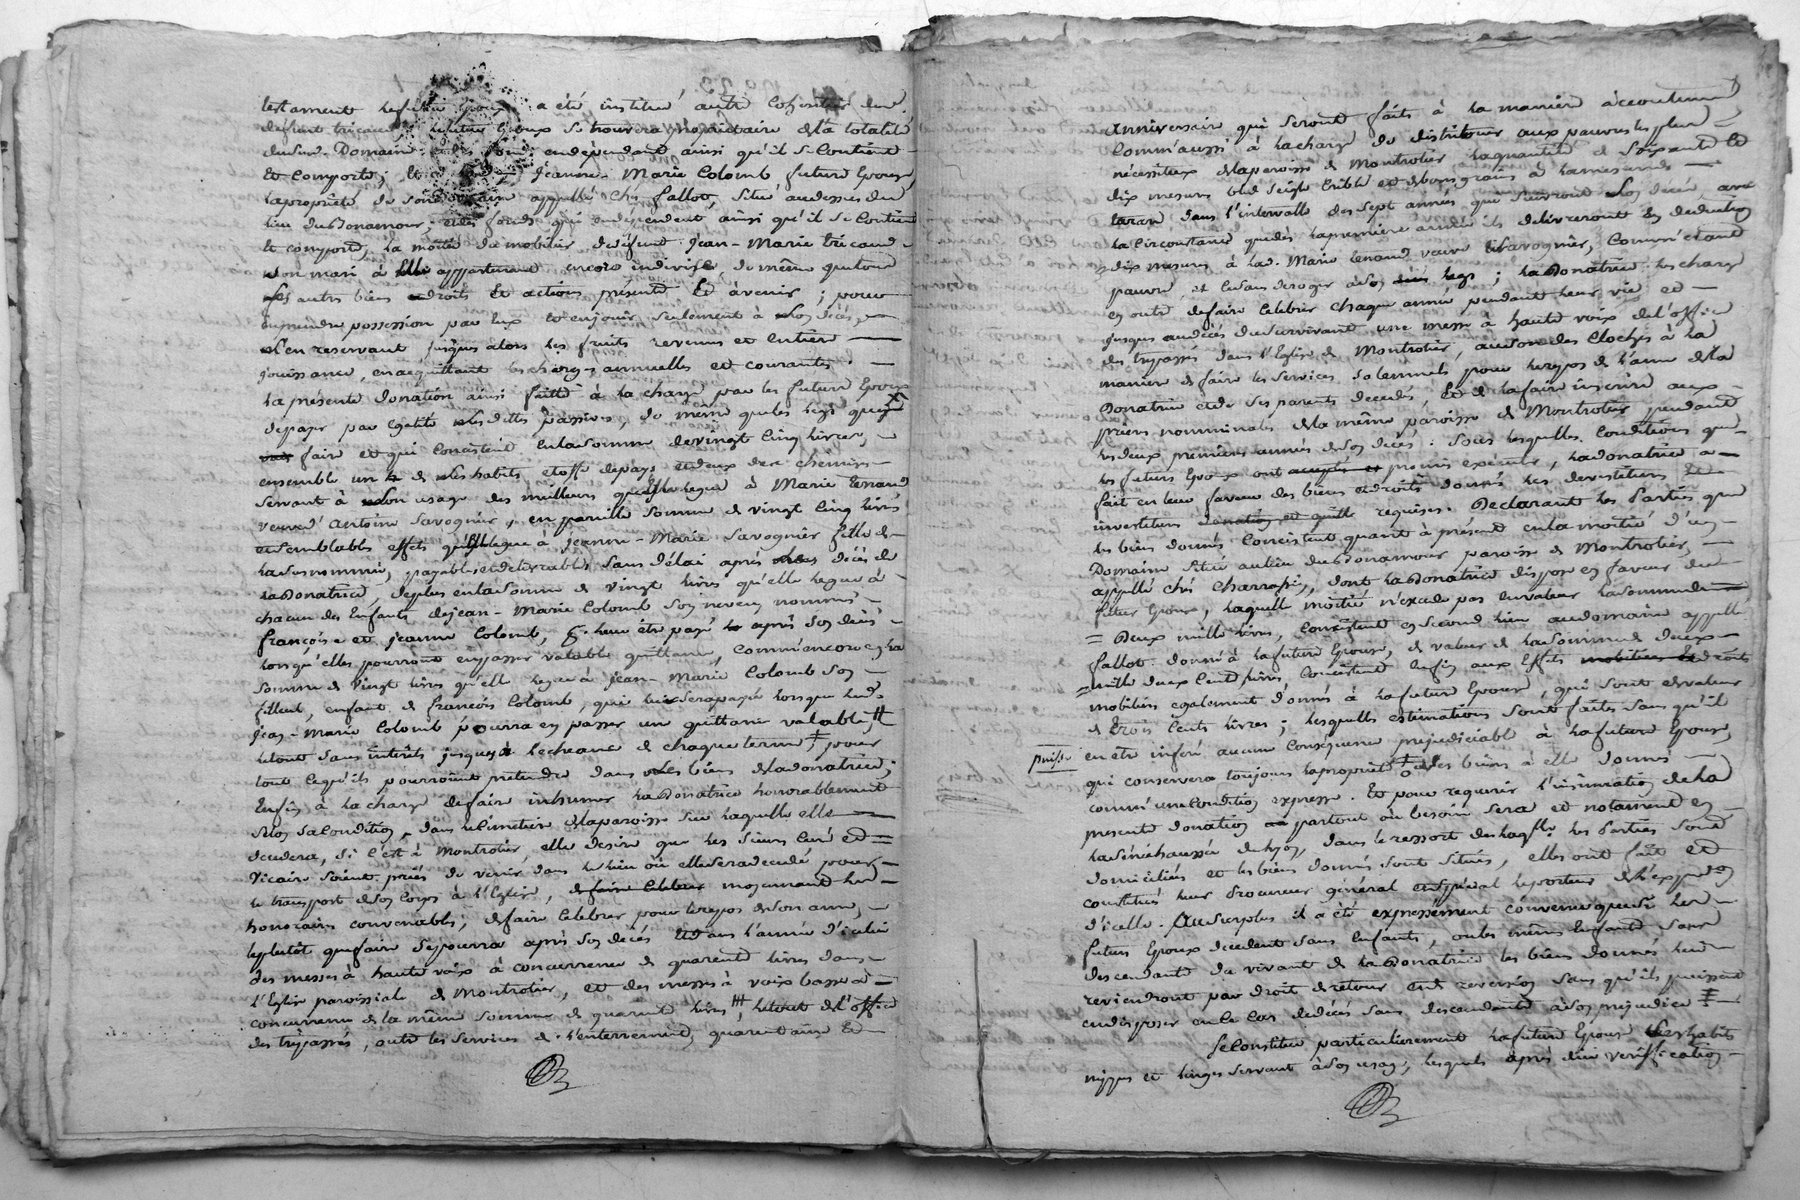 testament le futur Epoux a été institué autre Cohéritier du
défunt tricaud; le futur Epoux se trouvera propriétaire de la totalité
dudit Domaine en dépendant ainsi qu'il se Contient
Et Comporte; Et Jeanne-Marie Colomb future Epouse,
la propriété de son Domaine appellé chés fallot, situé audessus du
lieu du Bonamour, et les fonds qui en dépendent, ainsi qu'il se Contient
Et comporte, la moitié du mobilier du défunt Jean-Marie tricaud
son mari à Elle appartenant encore indivise, de même que tous
ses autres biens droits Et actions présents Et à venir; pour
en prendre possession par Eux Et en jouir seulement à son décès,
s'en reservant jusques alors les fruits revenus et Entière
jouissance, en acquittant les charges annuelles et courantes.
La présente donation ainsi faitte à la charge par les futurs Epoux
de payer par égalité ses dettes passives, de même que les legs que
faire et qui Consistent En la somme de vingt Cinq livres,
ensemble un de ses habits etoffe de pays et deux de ses chemises
servant à son usage des meilleurs qu'Elle legue à Marie tenaud
veuve d'antoine Savognier, en pareille somme de vingt Cinq livres
et semblables effets qu'Elle legue à Jeanne-Marie Savognier fille de
la susnommée, payables et delivrables sans délai après le décès de
la Donatrice, de plus en la somme de vingt livres qu'elle legue à
chacun des Enfants de jean-Marie Colomb son neveu nommés
françoise et jeanne Colomb, pour leur être payé après son décès
lorsqu'elles pourront en passer valable quittance, comm'encore en la
somme de vingt livres qu'elle legue à jean-Marie Colomb son
filleul, enfant de françois Colomb, qui lui sera payée lorsque led.
Jean-Marie Colomb pourra en passer une quittance valable,
le tout sans intérêts jusques à l'echeance de chaque terme, pour
tout ce qu'ils pourroient prétendre dans les biens de la donatrice;
Enfin à la charge de faire inhumer la Donatrice honorablement
selon sa Condition, dans le cimetière de la paroisse sur laquelle elle
decedera, si c'est à Montrotier, elle desire que les sieurs Curé et
Vicaire soient priés de venir dans le lieu où elle sera decedée pour
le transport de son Corps à l'Eglise, de faire celebrer moyennant les
honoraires convenables; de faire celebrer pour le repos de son ame,
le plutôt que faire se pourra après son décès Et dans l'année d'icelui
des messes à haute voix à concurrence de quarente livres dans
l'Eglise paroissiale de Montrotier, et des messes à voix basse à
concurrence de la même somme de quarente livres, le tout de l'office
des trépassés, outre les services de l'enterrement, quarentaine Et
anniversaire qui seront faits à la manière accoutumée
Comm'aussi à la charge de distribuer aux pauvres les plus
nécessiteux de la paroisse de Montrotier la quantité de soixante Et
dix mesures bled seigle criblé et de bon grain à la mesure de
tarare dans l'intervalle des sept années qui suivront son décès, avec
la Circonstance que dès la première année ils delivreront En deduction
dix mesures à lad. Marie tenaud veuve Savognier, Comm'etant
pauvre, et sans deroger à son legs; la Donatrice les charge
en outre de faire Celebrer chaque année pendant leur vie et
jusques au décès du survivant une messe à haute voix de l'office
des trépassés dans l'Eglise de Montrotier, au son des Cloches à la
manière de faire les services solemnels pour le repos de l'ame de la
Donatrice et de ses parents decedés, Et de la faire inscrire aux
prières nominales de la même paroisse de Montrotier pendant
les deux premières années de son décès: sous lesquelles Conditions que
les futurs Epoux ont accepté et promis exécuter, la donatrice a
fait en leur faveur des biens et droits donnés les devestitures Et
investitures donation et quitte requises. Declarant les Parties que
les biens donnés Consistent quant à présent en la moitié d'un
Domaine situé au lieu du Bonamour paroisse de Montrotier,
appellé chés Charrassin, dont la Donatrice dispose en faveur du
futur Epoux, laquelle moitié n'excede pas en valeur la somme de
= Deux mille livres, Consistent en second lieu au domaine appellé
fallot donné à la future Epouse, de valeur de la somme de deux
= mille deux Cent livres, Consistent enfin aux Effets mobiliers Et droits
mobiliers également donnés à la future Epouse, qui sont de valeur
de trois Cents livres; lesquelles estimations sont faites sans qu'il
puisse en être inferé aucune Consequence prejudiciable à la future Epouse,
qui conservera toujours la propriété des biens à elle donnés
comm'une Condition expresse. Et pour requerir l'insinuation de la
presente donation partout où besoin sera et notament en
la sénéchaussée de Lyon, dans le ressort de laquelle les Parties sont
domiciliées et les biens donnés sont situés, elles ont fait et
constitués leur Procureur général et spécial le porteur de l'expédition
d'icelle. Au surplus il a été expressement convenu que si les
futurs Epoux decedent sans Enfants, ou les mêmes Enfants sans
descendants du vivant de la Donatrice les biens donnés lui
reviendront par droit de retour Et de reversion sans qu'ils puissent
en disposer en le cas de décès sans descendants à son prejudice
Se Constitue particulierement la future Epouse ses habits
nippes et linges servant à son usage, lesquels après due verification